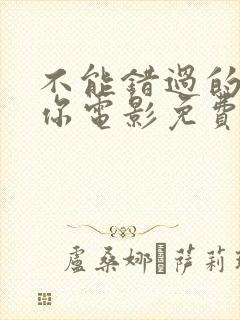 不能错過的
你電影免費
盧桑娜·萨莉